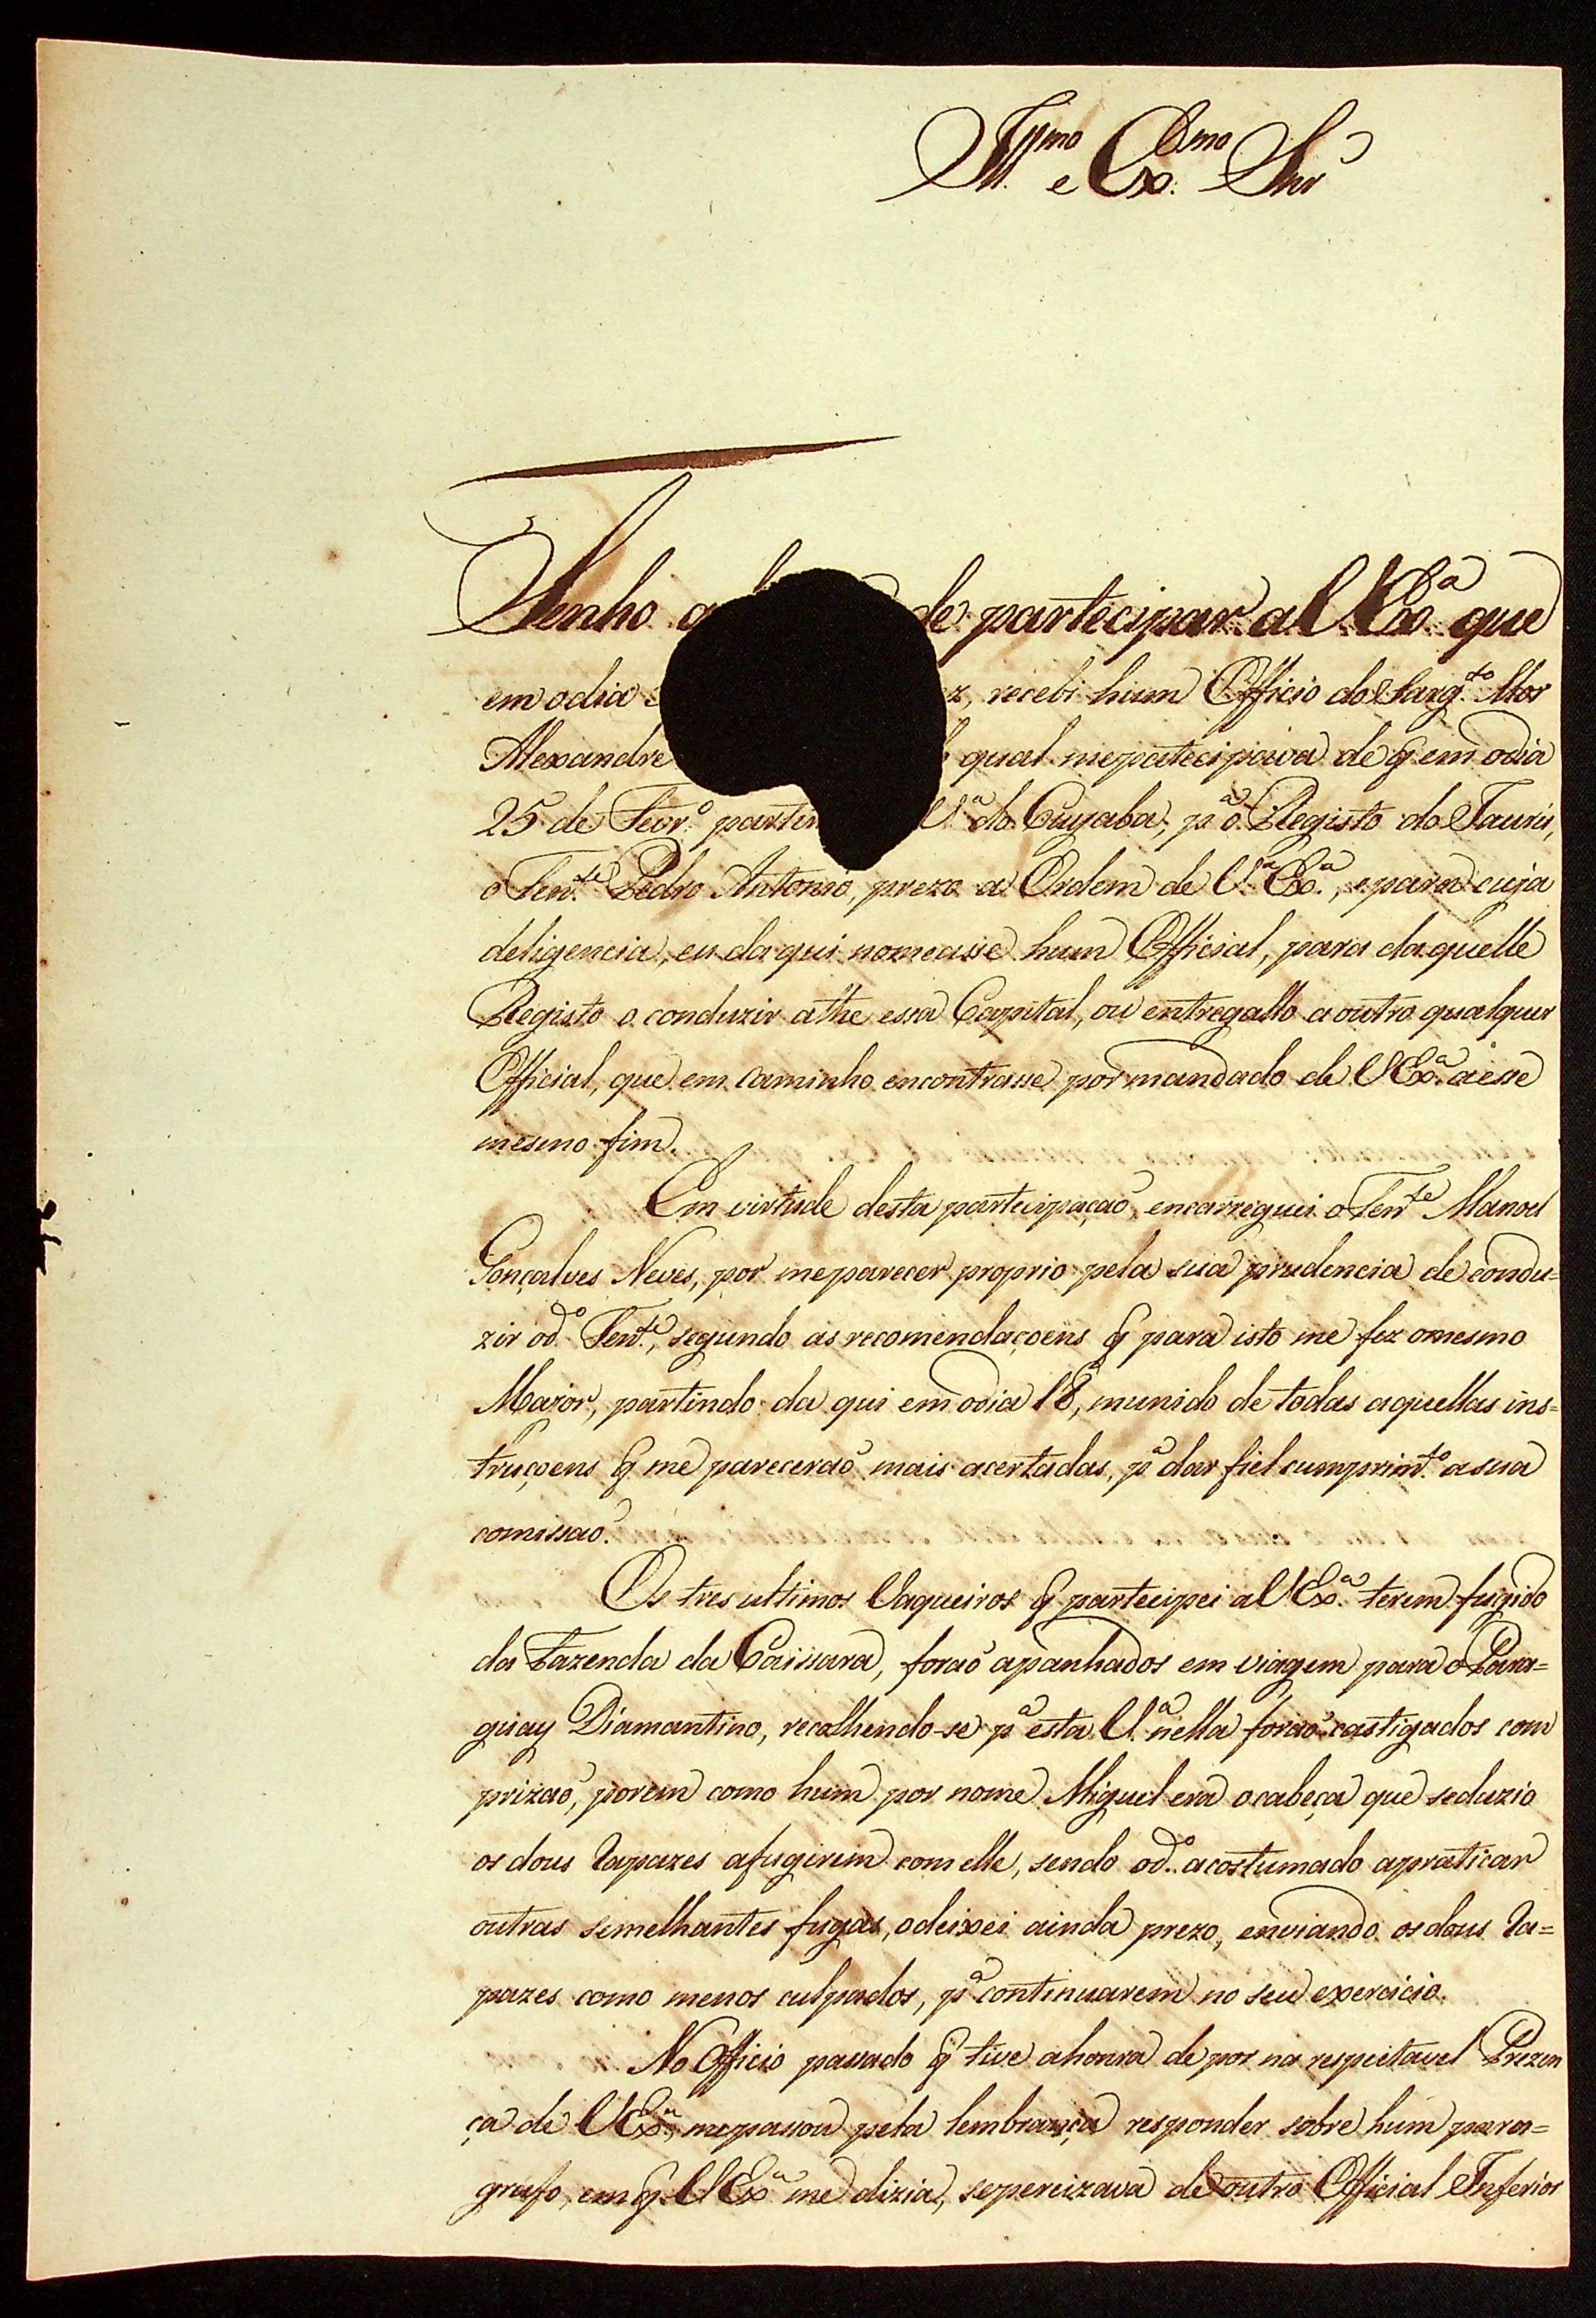 Ill.mo e Ex.mo Snr
Tenho a de partecipar a V Ex.a que
em o dia z, recebi hum Officio do Sarg.to Mor
Alexandre qual me patecipava de q em o dia
25 de Fevr.o V.a do Cuyaba, p.a o Registo do Jaurú,
o Ten.te Pedro Antonio, prezo a Ordem de V.a Ex.a, e para cuja
deligencia, eu da qui nomeasse hum Official, para daquelle
Registo o conduzir athe essa Capital, ou entregallo a outro qualquer
Official, que em caminho encontrasse por mandado de V Ex.a a esse
mesmo fim.
Em virtude desta partecipação, encarreguei o Ten.te Manoel
Gonçalves Neves, por me parecer proprio pela sua prudencia de condu=
zir o d.o Ten.te, segundo as recomendaçoens q para isto me fez o mesmo
Maior, partindo da qui em o dia 18, munido de todas aquellas ins=
truçoens q me parecerão mais acertadas, p.a dar fiel cumprim.to a sua
comissão.
Os tres ultimos Vaqueiros q partecipei a V Ex.a terem fugido
da Fazenda da Caissara, forão apanhados em viagem para o Para=
guay Diamantino, recolhendo-se p.a esta V.a nella forão castigados com
prizão, porem como hum por nome Miguel era o cabeça que seduzio
os dous Rapazes a fugirem com elle, sendo o d.o acostumado a praticar
outras semelhantes fugas, o deixei ainda prezo, enviando os dous Ra=
pazes como menos culpados, p.a continuarem no seu exercicio.
No Officio passado q tive a honra de por na respeitavel Prezen
ça de V Ex.a, me passou pela lembrança responder sobre hum para=
grafo, em q V Ex.a me dizia, se percizava de outro Official Inferior